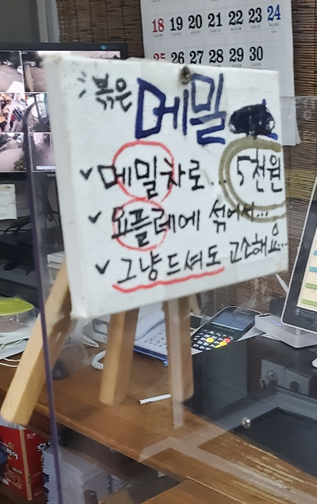 18 19 20 21 22 23 24
25 26 27 28 29 30
볶은 메밀
✓ 메밀차로... 5천원
✓ 요플레에 섞어서...
✓ 그냥드셔도 고소해요...